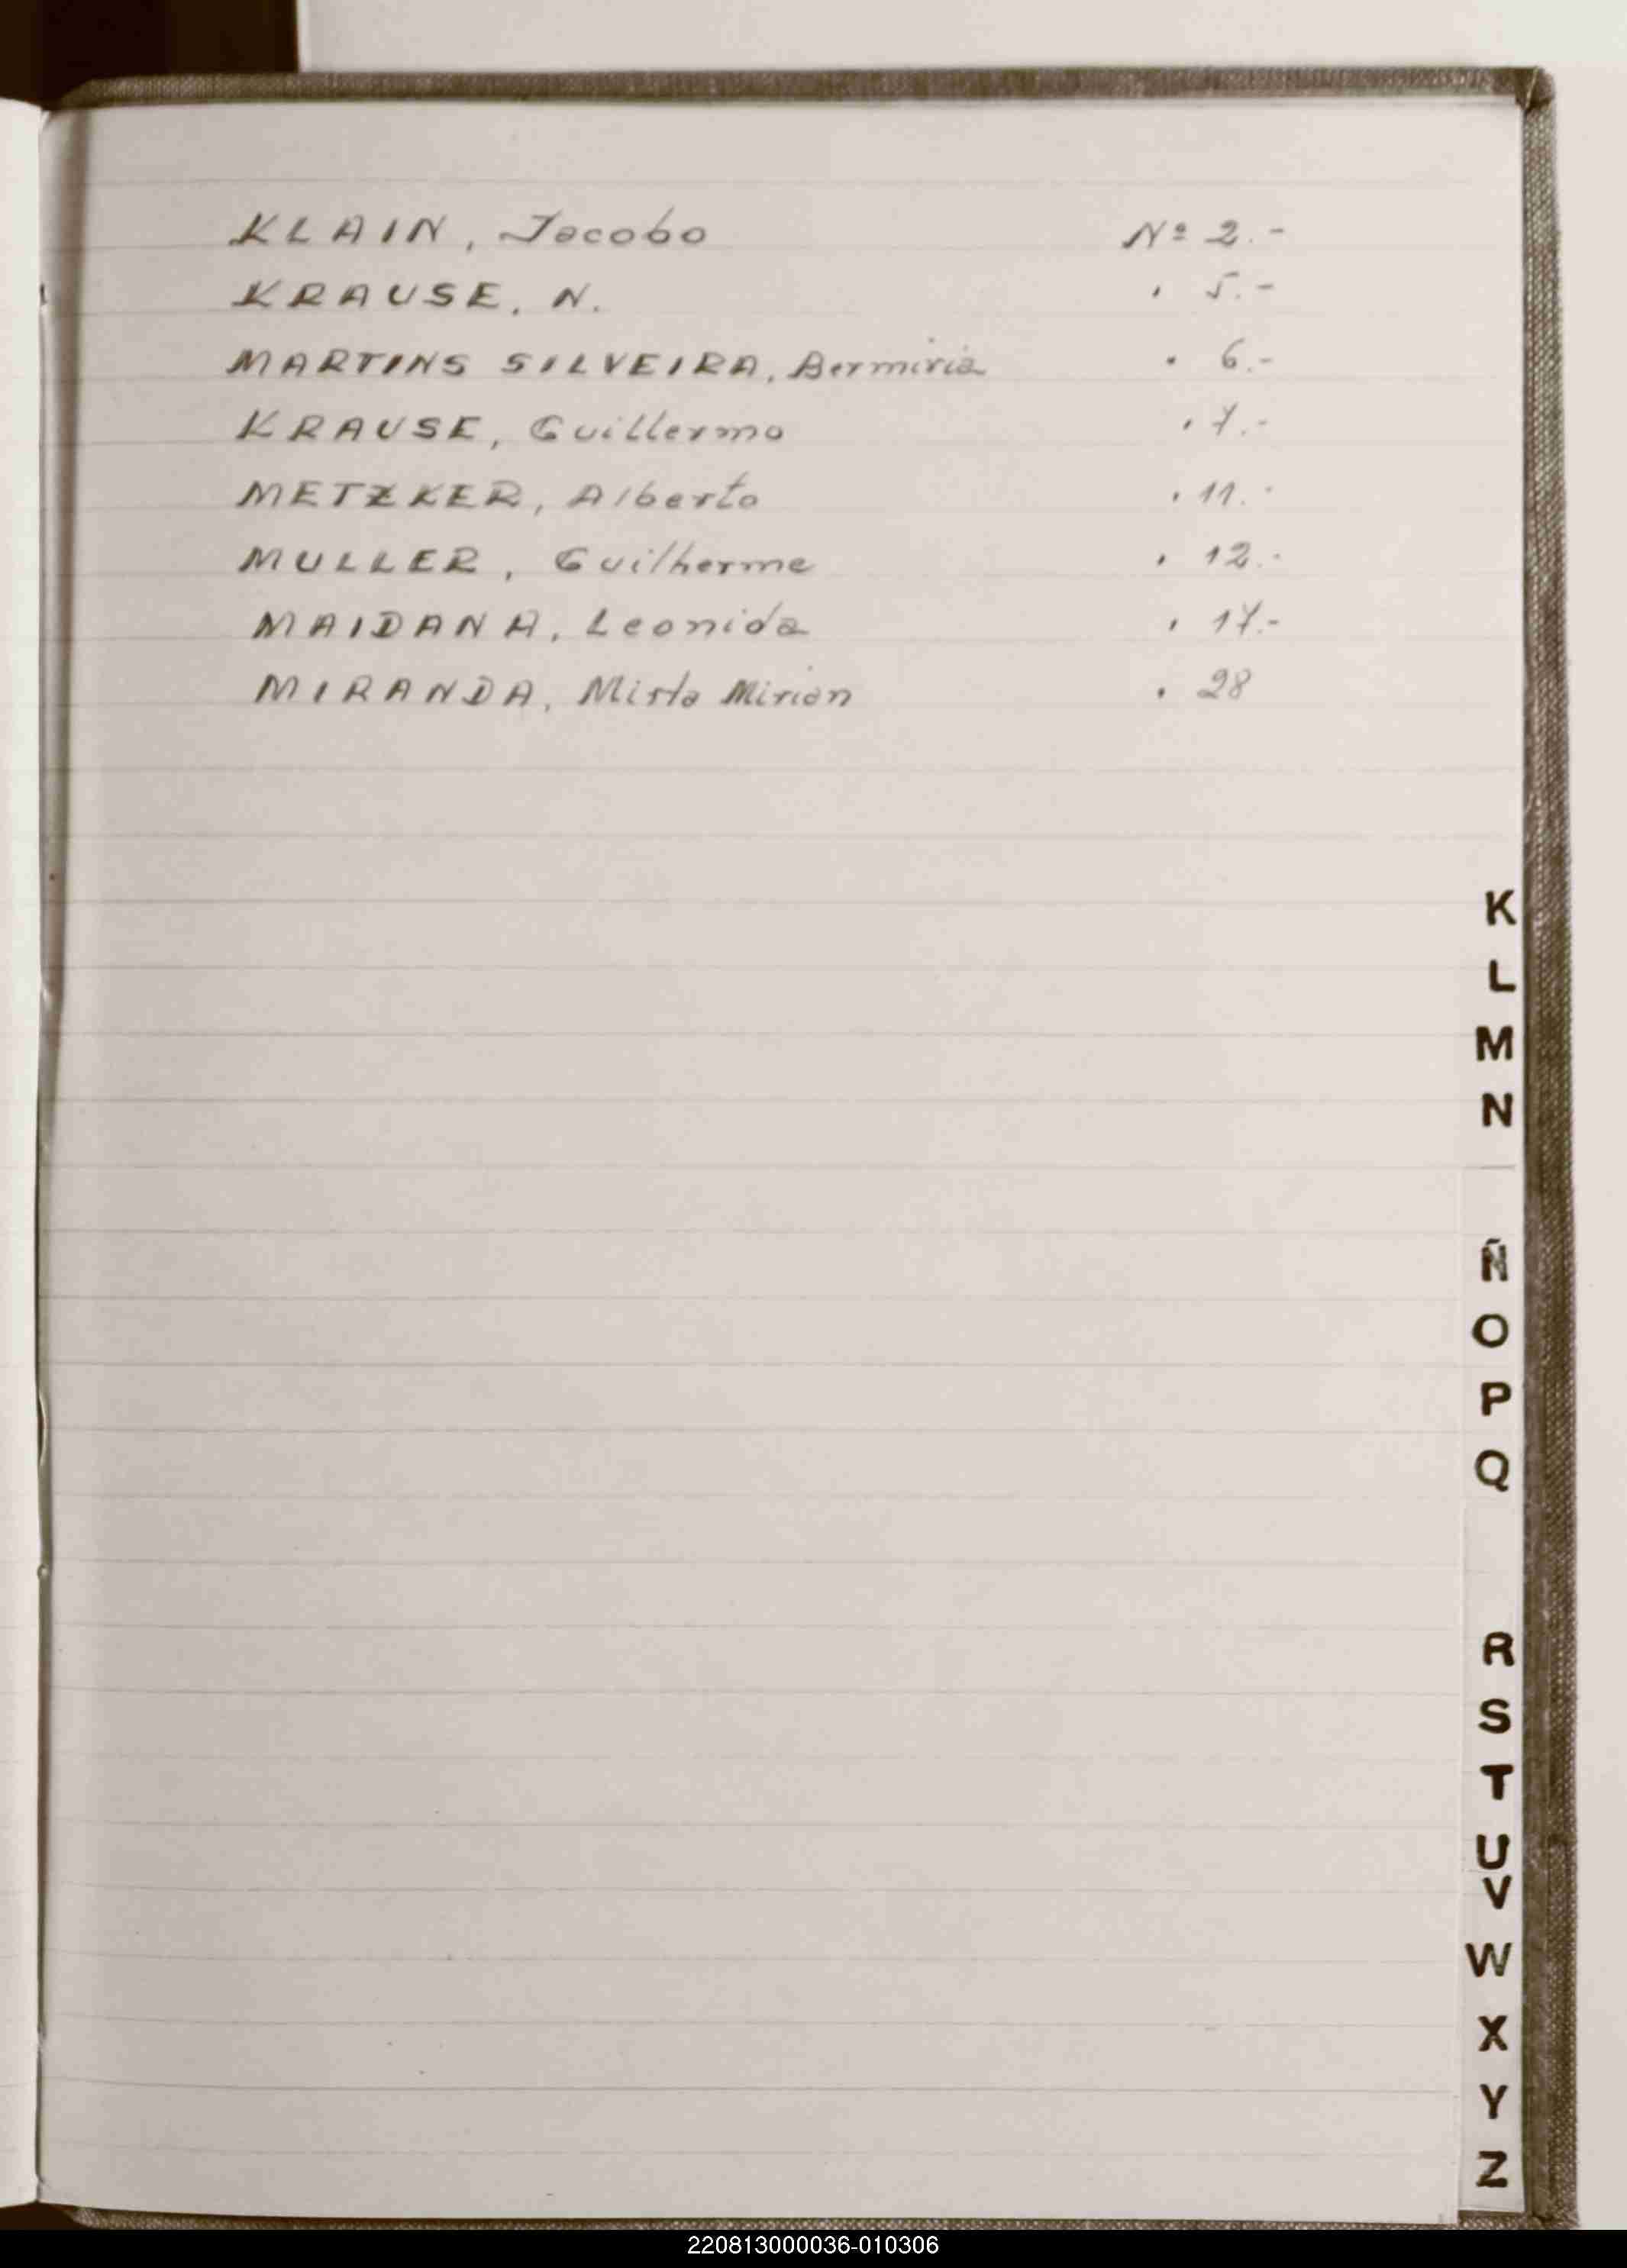 KLAIN, Jacobo Nº 2.-
KRAUSE, N. " 5.-
MARTINS SILVEIRA, Bermiria " 6.-
KRAUSE, Guillermo " 7.-
METZKER, Alberto " 11.-
MULLER, Guilherme " 12.-
MAIDANA, Leonida " 17.-
MIRANDA, Mirta Mirian " 28
K
L
M
N
Ñ
O
P
Q
R
S
T
U
V
W
X
Y
Z
220813000036-010306